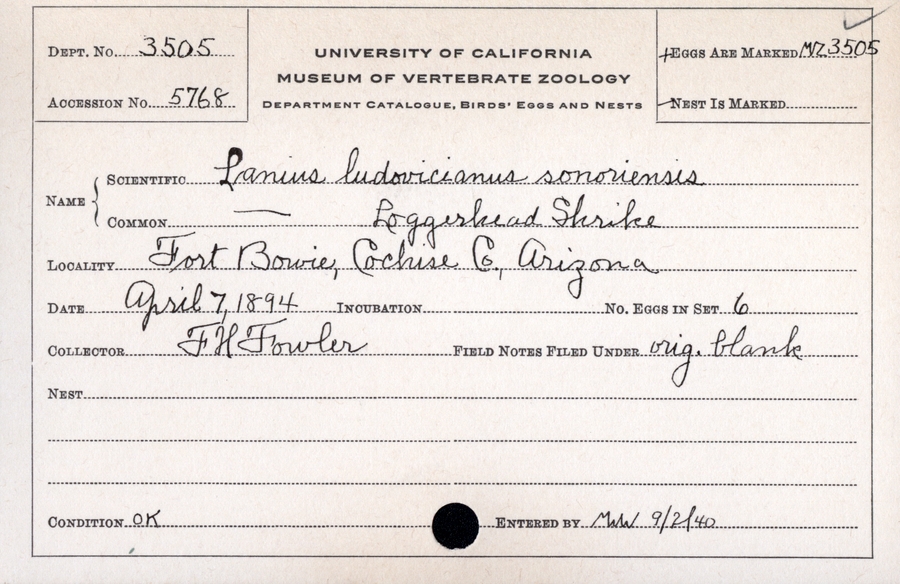 DEPT. NO. 3505
UNIVERSITY OF CALIFORNIA
MUSEUM OF VERTEBRATE ZOOLOGY
DEPARTMENT CATALOGUE, BIRDS' EGGS AND NESTS
EGGS ARE MARKED MVZ3505
ACCESSION NO. 5768
NEST IS MARKED
NAME
SCIENTIFIC Lanius ludovicianus sonoriensis
COMMON — Loggerhead Shrike
LOCALITY Fort Bowie, Cochise Co., Arizona
DATE April 7, 1894 INCUBATION NO. EGGS IN SET 6
COLLECTOR F H Fowler FIELD NOTES FILED UNDER orig. blank
NEST
CONDITION OK ENTERED BY 9/2/40